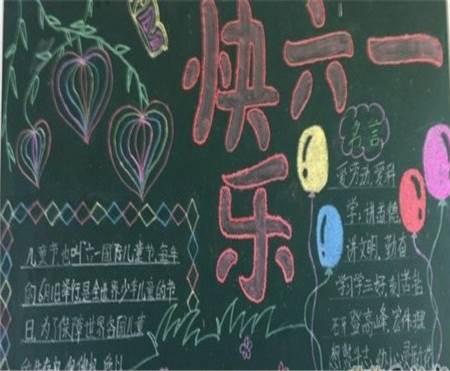 快六一
乐
名言
爱劳动,爱科
学;讲孟德
讲文明,勤奋
学习学三好,刻苦钻
石开登高峰;宏伟理
儿童节也叫"六一国际儿童节,每年
的6月1日举行,是全世界少年儿童的节
日,为了保障世界各国儿童